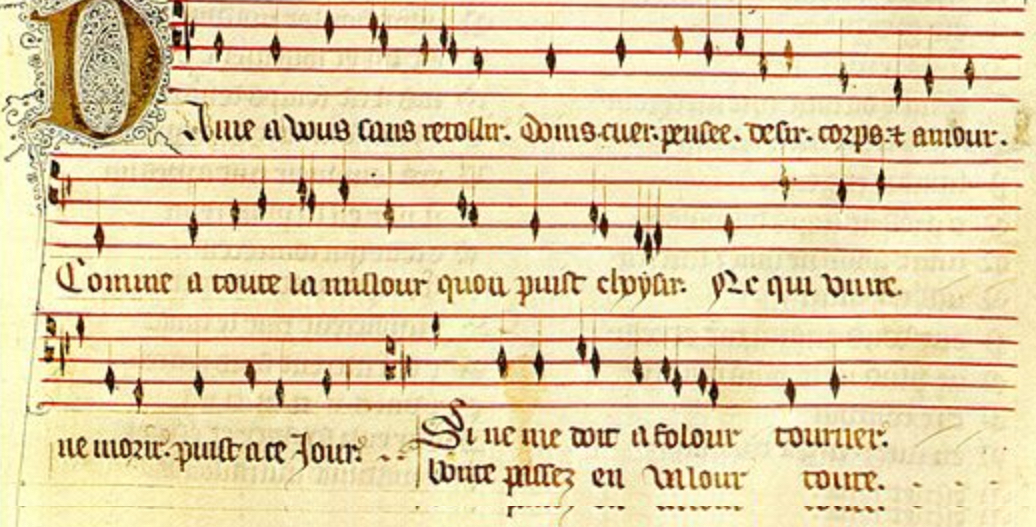 Dame a vous sans retollir. Doins. cuer. pensee. desir. corps. ⁊ amour.
Comme a toute la millour quon puist choysir. Ne qui vivre
ne morir. puist a ce Jour.
Si ne me doit a folour tourner.
bonte passez en valour toute.